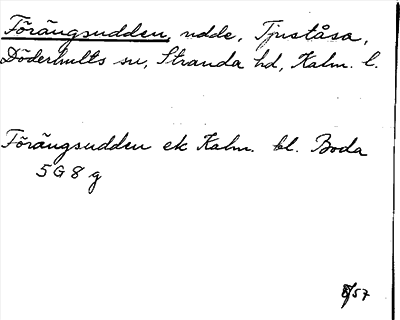 Förängsudden, udde, Tjuståsa,
Döderhults sn, Stranda hd, Kalm. l.
Förängsudden ek Kalm. bl. Boda
5 G 8 g
/57